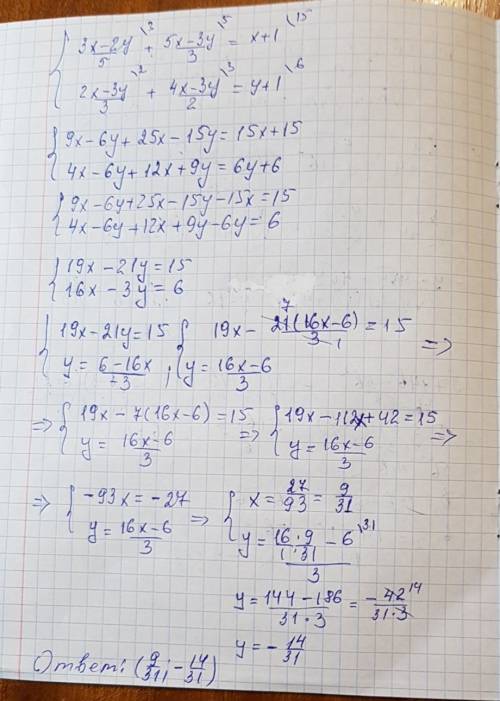 { 3x-2y/5 \3 + 5x-3y/3 \5 = x+1 \15
{ 2x-3y/3 \2 + 4x-3y/2 \3 = y+1 \6
{ 9x-6y+25x-15y=15x+15
{ 4x-6y+12x+9y=6y+6
{ 9x-6y+25x-15y-15x=15
{ 4x-6y+12x+9y-6y=6
{ 19x-21y=15
{ 16x-3y=6
{ 19x-21y=15 { 19x- 21 7 (16x-6)/3 1 =15
{ y= 6-16x/-3 , { y= 16x-6/3 =>
=> { 19x-7(16x-6)=15 => { 19x-112x+42=15 =>
{ y= 16x-6/3 { y= 16x-6/3
=> { -93x=-27 => { x= 27/93 = 9/31
{ y= 16x-6/3 { y= 16·9/1·31 - 6 \31 /3
y= 144-186/31·3 = -42 14/31·3
y=- 14/31
Ответ: (9/31; -14/31)